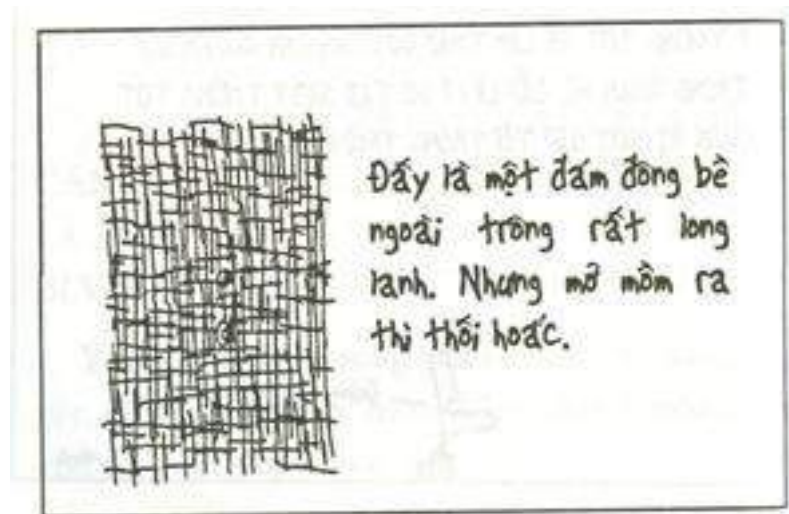 Đấy là một đám đông bề
ngoài trông rất long
lanh. Nhưng mở mồm ra
thì thối hoắc.